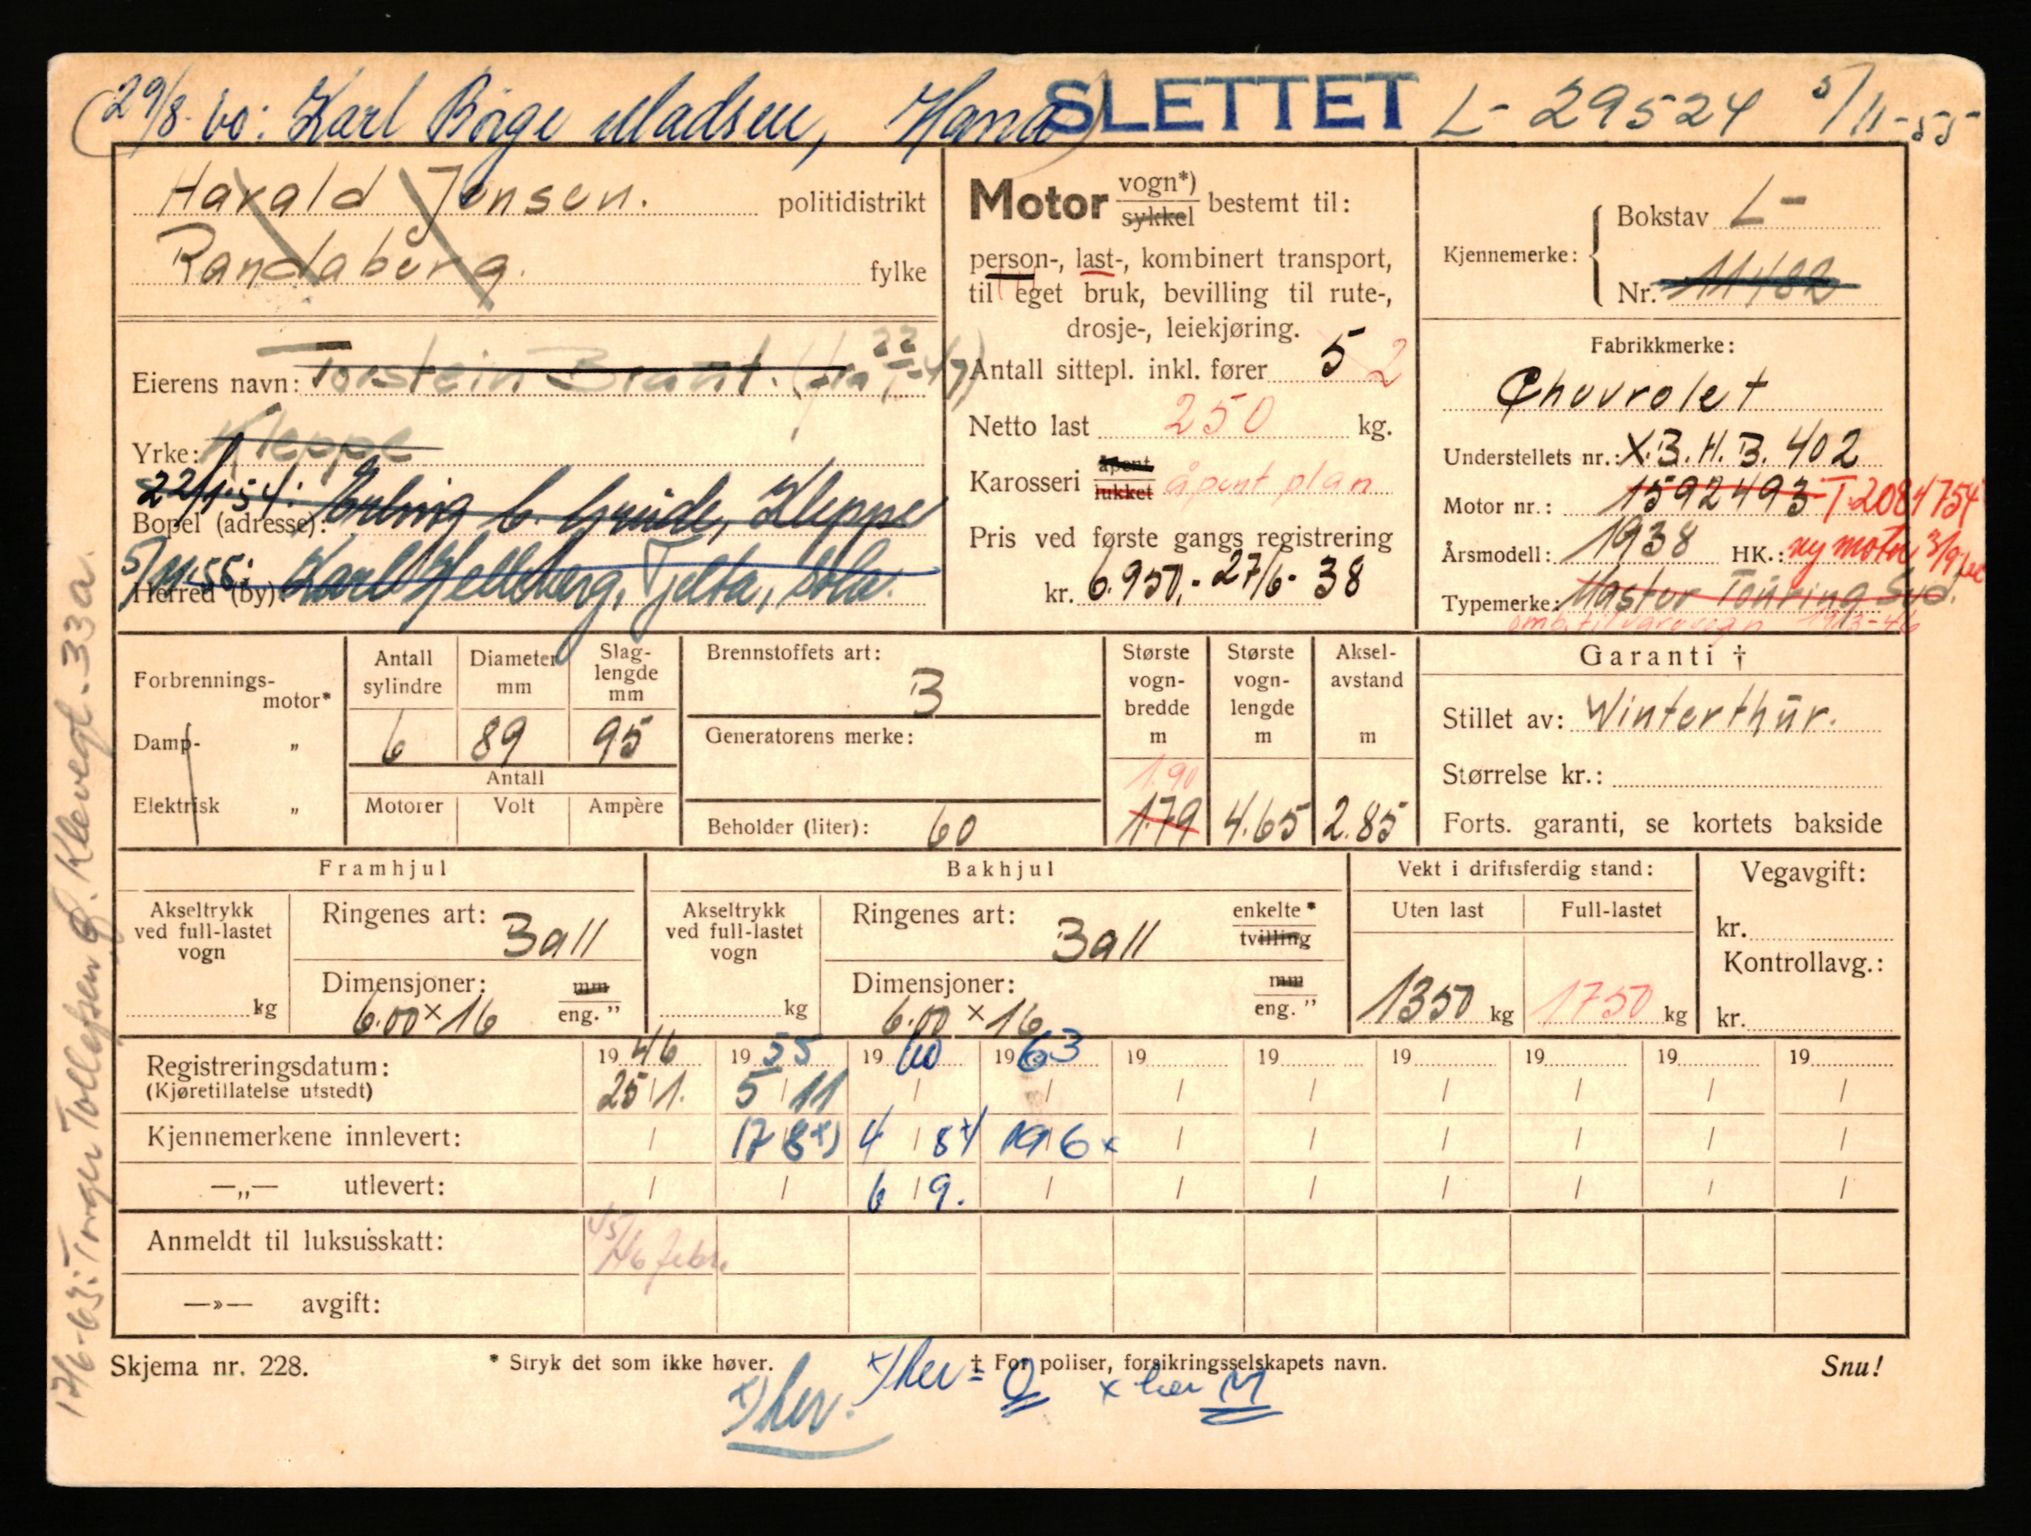 (29/8-60: Karl Börge Madsen, Hana) SLETTET L-29524 5/11-55
Harald Jensen. politidistrikt
Randaberg. fylke
Eierens navn: Torstein Brant. (fra 22/1-47)
Yrke: Kleppe
22/1-54:
Bopel (adresse): Erling G. Grude, Kleppe
5/11-55: Karl Hellberg, Tjelta, Sola.
Herred (by)
Motor vogn*) sykkel bestemt til:
person-, last-, kombinert transport,
til eget bruk, bevilling til rute-,
drosje-, leiekjøring.
Antall sittepl. inkl. fører 5 2
Netto last 250 kg.
Karosseri åpent lukket åpent plan
Pris ved første gangs registrering
kr. 6.950,- 27/6- 38
Kjennemerke: Bokstav L-
Nr. 11482
Fabrikkmerke:
Chevrolet
Understellets nr.: X.B.H.B. 402
Motor nr.: 1592493 T-2084754
Årsmodell: 1938 HK.: ny motor 3/9-60
Typemerke: Master Touring Svd.
omb. til varevogn
Forbrennings-motor*
Damp- „
Elektrisk „
Antall sylindre 6
Diameter mm 89
Slaglengde mm 95
Antall
Motorer Volt Ampère
Brennstoffets art: B
Generatorens merke:
Beholder (liter): 60
Største vogn-bredde m 1.90 1.79
Største vogn-lengde m 4.65
Aksel-avstand m 2.85
Garanti †
Stillet av: Winterthür.
Størrelse kr.:
Forts. garanti, se kortets bakside
Framhjul Bakhjul Vekt i driftsferdig stand: Vegavgift:
Akseltrykk ved full-lastet vogn kg
Ringenes art: Ball
Dimensjoner: 6.00 x 16 mm eng. "
Akseltrykk ved full-lastet vogn kg
Ringenes art: Ball enkelte* tvilling
Dimensjoner: 6.00 x 16 mm eng. "
Uten last 1350 kg
Full-lastet 1750 kg
kr.
Kontrollavg.:
kr.
Registreringsdatum: 19 46 19 55 19 60 19 63 19 19 19 19 19 19
(Kjøretillatelse utstedt) 25/1. 5/11 / / / / / / / /
Kjennemerkene innlevert: / 17/8 x) 4/8 x) 19/6 x / / / / / /
—„— utlevert: / / 6/9. / / / / / / /
Anmeldt til luksusskatt: 45/46 febr.
—»— avgift:
Skjema nr. 228. * Stryk det som ikke høver. † For poliser, forsikringsselskapets navn. Snu!
x) her. x) her = O x her M
17/6-63: Torger Tollefsen, Klevegt. 33a.